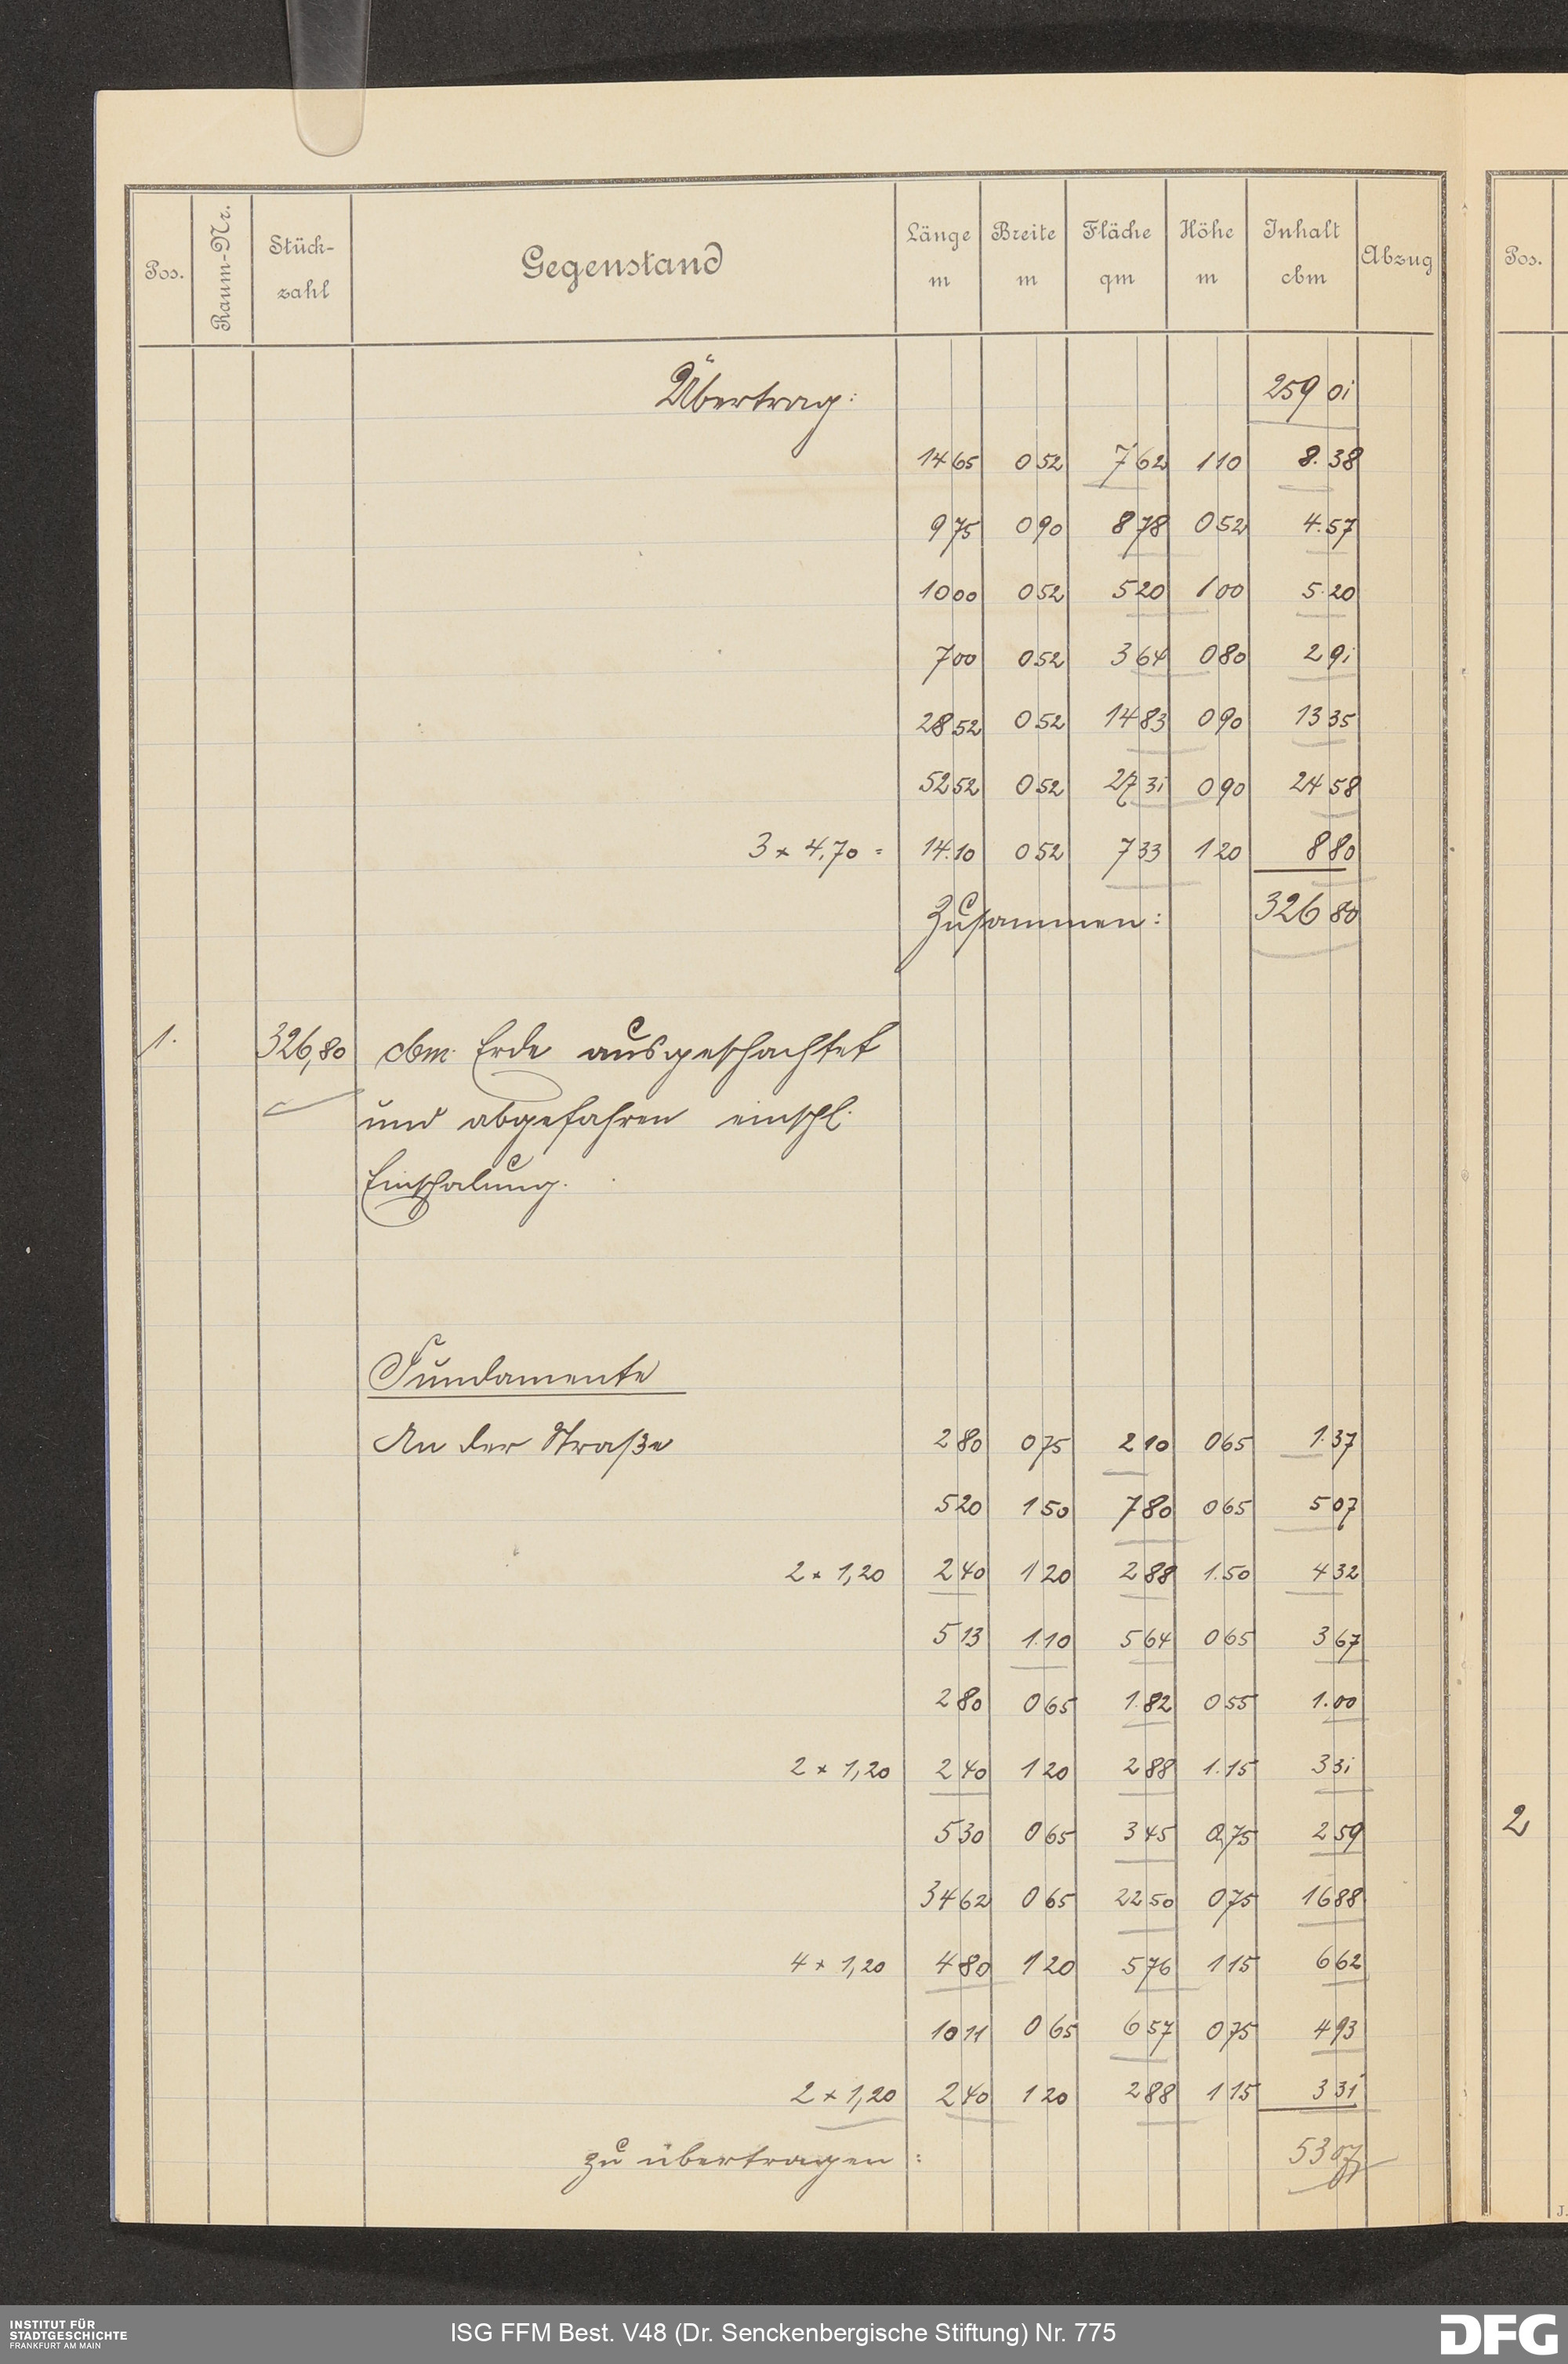 Pos. Raum-Nr. Stück-zahl Gegenstand Länge m Breite m Fläche qm Höhe m Inhalt cbm Abzug Pos.
Übertrag: 259 01
14 65 0 52 7 62 1 10 8. 38
9 75 0 90 8 78 0 52 4. 57
10 00 0 52 5 20 1 00 5. 20
7 00 0 52 3 64 0 80 2 91
28 52 0 52 14 83 0 90 13 35
52 52 0 52 27 31 0 90 24 58
3 × 4,70 = 14. 10 0 52 7 33 1 20 8 80
Zusammen: 326 80
1. 326,80 cbm. Erde ausgeschachtet
und abgefahren einschl.
Einschalung.
Fundamente
An der Straße 2 80 0 75 2 10 0 65 1. 37
5 20 1 50 7 80 0 65 5 07
2 × 1,20 2 40 1 20 2 88 1. 50 4 32
5 13 1. 10 5 64 0 65 3 67
2 80 0 65 1. 82 0 55 1. 00
2 × 1,20 2 40 1 20 2 88 1. 15 3 31
5 30 0 65 3 45 0,75 2 59
2
34 62 0 65 22 50 0 75 16 88
4 × 1,20 4 80 1 20 5 76 1 15 6 62
10 11 0 65 6 57 0 75 4 93
2 × 1,20 2 40 1 20 2 88 1 15 3 31
zu übertragen: 53 07
J.
INSTITUT FÜR
STADTGESCHICHTE
FRANKFURT AM MAIN
ISG FFM Best. V48 (Dr. Senckenbergische Stiftung) Nr. 775
DFG